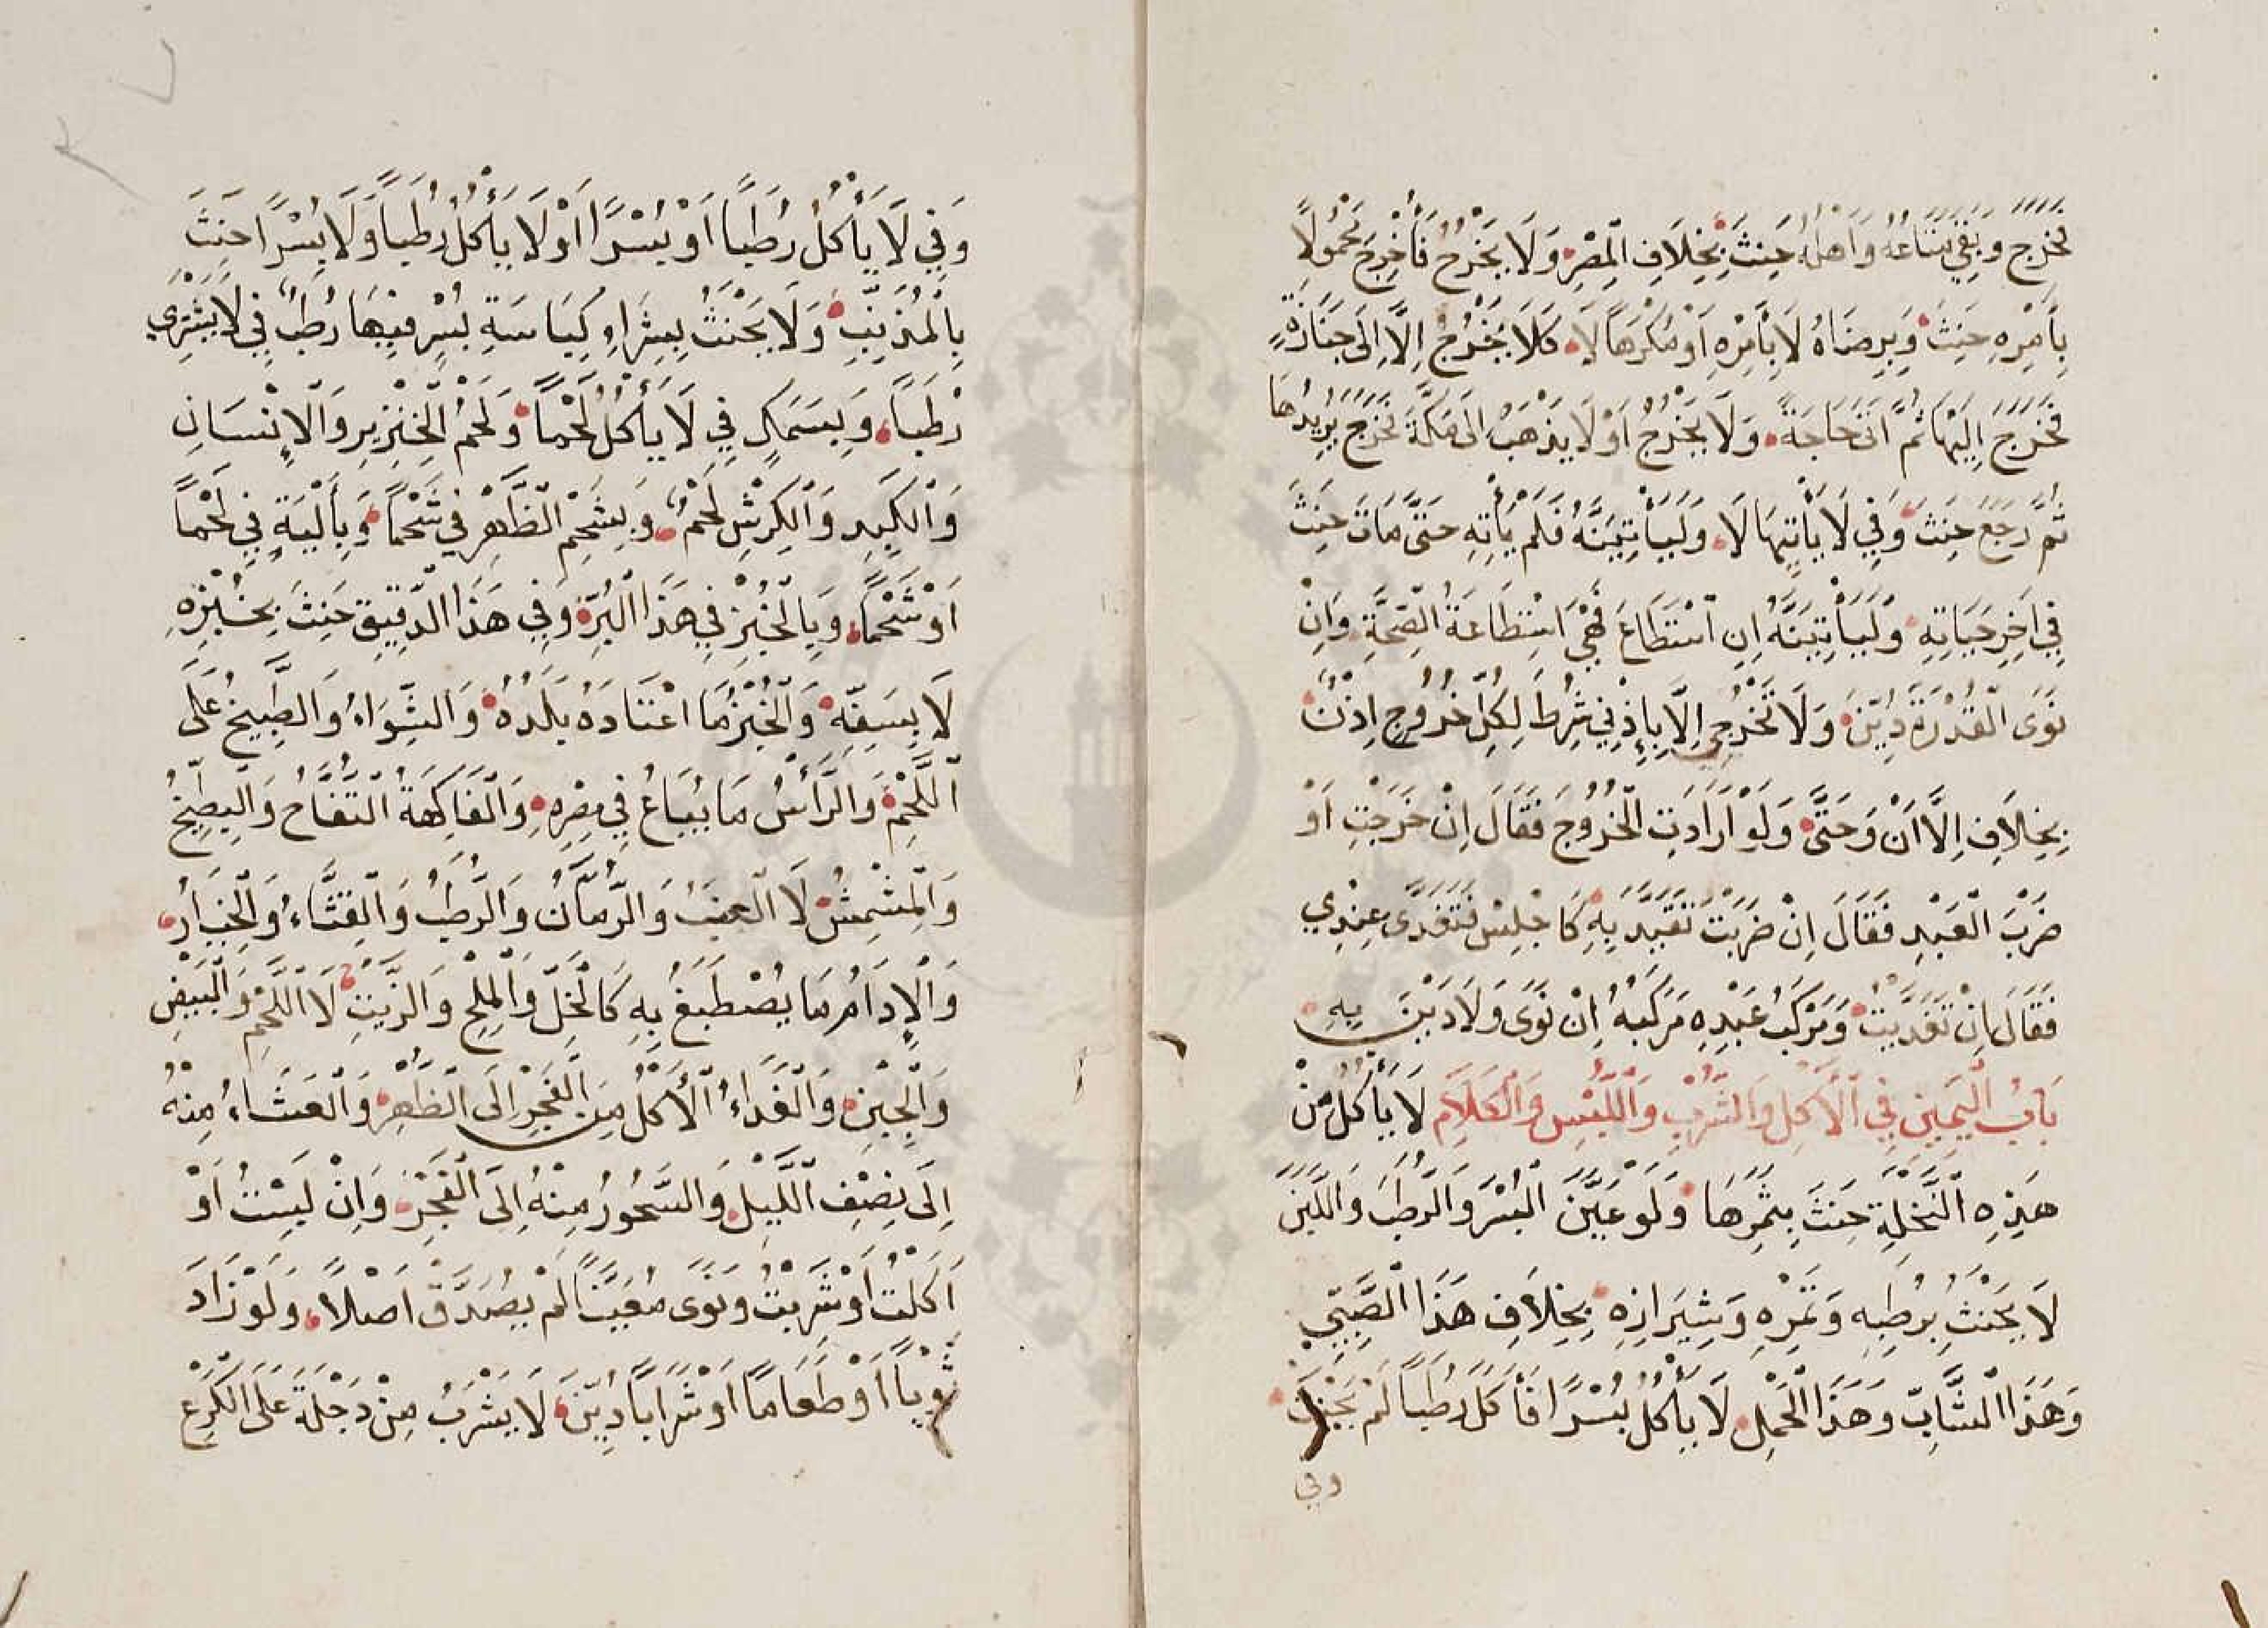 فَخَرَجَ وَبَقِيَ مَتَاعُهُ وَاَهْلُهُ حَنِثَ بِخِلَافِ الْمِصْرِ وَلَا يَخْرُجُ فَأُخْرِجَ مَحْمُولًا
بِاَمْرِهِ حَنِثَ وَبِرِضَاهُ لَا بِأَمْرِهِ اَوْ مُكْرَهًا لَا كَلَا يَخْرُجُ اِلَّا اِلَى جَنَازَةٍ
فَخَرَجَ اِلَيْهَا ثُمَّ اَتَى حَاجَةً وَلَا يَخْرُجُ اَوْ لَا يَذْهَبُ اِلَى مَكَّةَ فَخَرَجَ يُرِيدُهَا
ثُمَّ رَجَعَ حَنِثَ وَفِي لَا يَأْتِيهَا لَا وَلَيَأْتِيَنَّهُ فَلَمْ يَأْتِهِ حَتَّى مَاتَ حَنِثَ
فِي اٰخِرِ حَيَاتِهِ وَلَيَأْتِيَنَّهُ اِنِ اسْتَطَاعَ فَهِيَ اسْتِطَاعَةُ الصِّحَّةِ وَاِنْ
نَوَى الْقُدْرَةَ دُيِّنَ وَلَا تَخْرُجِي اِلَّا بِاِذْنِي شُرِطَ لِكُلِّ خُرُوجٍ اِذْنٌ
بِخِلَافِ اِلَّا اَنْ وَحَتَّى وَلَوْ اَرَادَتِ الْخُرُوجَ فَقَالَ اِنْ خَرَجْتِ اَوْ
ضَرْبَ الْعَبْدِ فَقَالَ اِنْ ضَرَبْتَ تَقَيَّدَ بِهِ كَاجْلِسْ فَتَغَدَّى عِنْدِي
فَقَالَ اِنْ تَغَدَّيْتُ وَمَرْكَبُ عَبْدِهِ مَرْكَبُهُ اِنْ نَوَى وَلَا دَيْنَ بِهِ
بَابُ الْيَمِينِ فِي الْاَكْلِ وَالشُّرْبِ وَاللُّبْسِ وَالْكَلَامِ لَا يَأْكُلُ مِنْ
هَذِهِ النَّخْلَةِ حَنِثَ بِثَمَرِهَا وَلَوْ عَيَّنَ الْبُسْرَ وَالرُّطَبَ وَاللَّبَنَ
لَا يَحْنَثُ بِرُطَبِهِ وَتَمْرِهِ وَشِيرَازِهِ بِخِلَافِ هَذَا الصَّبِيِّ
وَهَذَا الشَّابِّ وَهَذَا الْحَمَلِ لَا يَأْكُلُ بُسْرًا فَأَكَلَ رُطَبًا لَمْ يَحْنَثْ
وفي
وَفِي لَا يَأْكُلُ رُطَبًا اَوْ بُسْرًا اَوْ لَا يَأْكُلُ رُطَبًا وَلَا بُسْرًا حَنِثَ
بِالْمُذَنِّبِ وَلَا يَحْنَثُ بِشِرَاءِ كِبَاسَةِ بُسْرٍ فِيهَا رُطَبٌ فِي لَا يَشْتَرِي
رُطَبًا وَبِسَمَكٍ فِي لَا يَأْكُلُ لَحْمًا وَلَحْمُ الْخِنْزِيرِ وَالْاِنْسَانِ
وَالْكَبِدِ وَالْكَرِشِ لَحْمٌ وَبِشَحْمِ الظَّهْرِ فِي شَحْمًا وَبِأَلْيَةٍ فِي لَحْمًا
اَوْ شَحْمًا وَبِالْخُبْزِ فِي هَذَا الْبُرِّ وَفِي هَذَا الدَّقِيقِ حَنِثَ بِخُبْزِهِ
لَا بِسَفِّهِ وَالْخُبْزُ مَا اعْتَادَهُ بَلَدُهُ وَالشِّوَاءُ وَالطَّبِيخُ عَلَى
اللَّحْمِ وَالرَّأْسُ مَا يُبَاعُ فِي مِصْرِهِ وَالْفَاكِهَةُ التُّفَّاحُ وَالْبِطِّيخُ
وَالْمِشْمِشُ لَا الْعِنَبُ وَالرُّمَّانُ وَالرُّطَبُ وَالْقِثَّاءُ وَالْخِيَارُ
وَالْاِدَامُ مَا يُصْطَبَغُ بِهِ كَالْخَلِّ وَالْمِلْحِ وَالزَّيْتِ لَا اللَّحْمِ وَالْبَيْضِ
وَالْجُبْنِ وَالْغَدَاءُ الْأَكْلُ مِنَ الْفَجْرِ اِلَى الظُّهْرِ وَالْعَشَاءُ مِنْهُ
اِلَى نِصْفِ اللَّيْلِ وَالسَّحُورُ مِنْهُ اِلَى الْفَجْرِ وَاِنْ لَبِسْتُ اَوْ
اَكَلْتُ اَوْ شَرِبْتُ وَنَوَى مُعَيَّنًا لَمْ يُصَدَّقْ اَصْلًا وَلَوْ زَادَ
ثَوْبًا اَوْ طَعَامًا اَوْ شَرَابًا دُيِّنَ لَا يَشْرَبُ مِنْ دَجْلَةَ عَلَى الْكَرْعِ